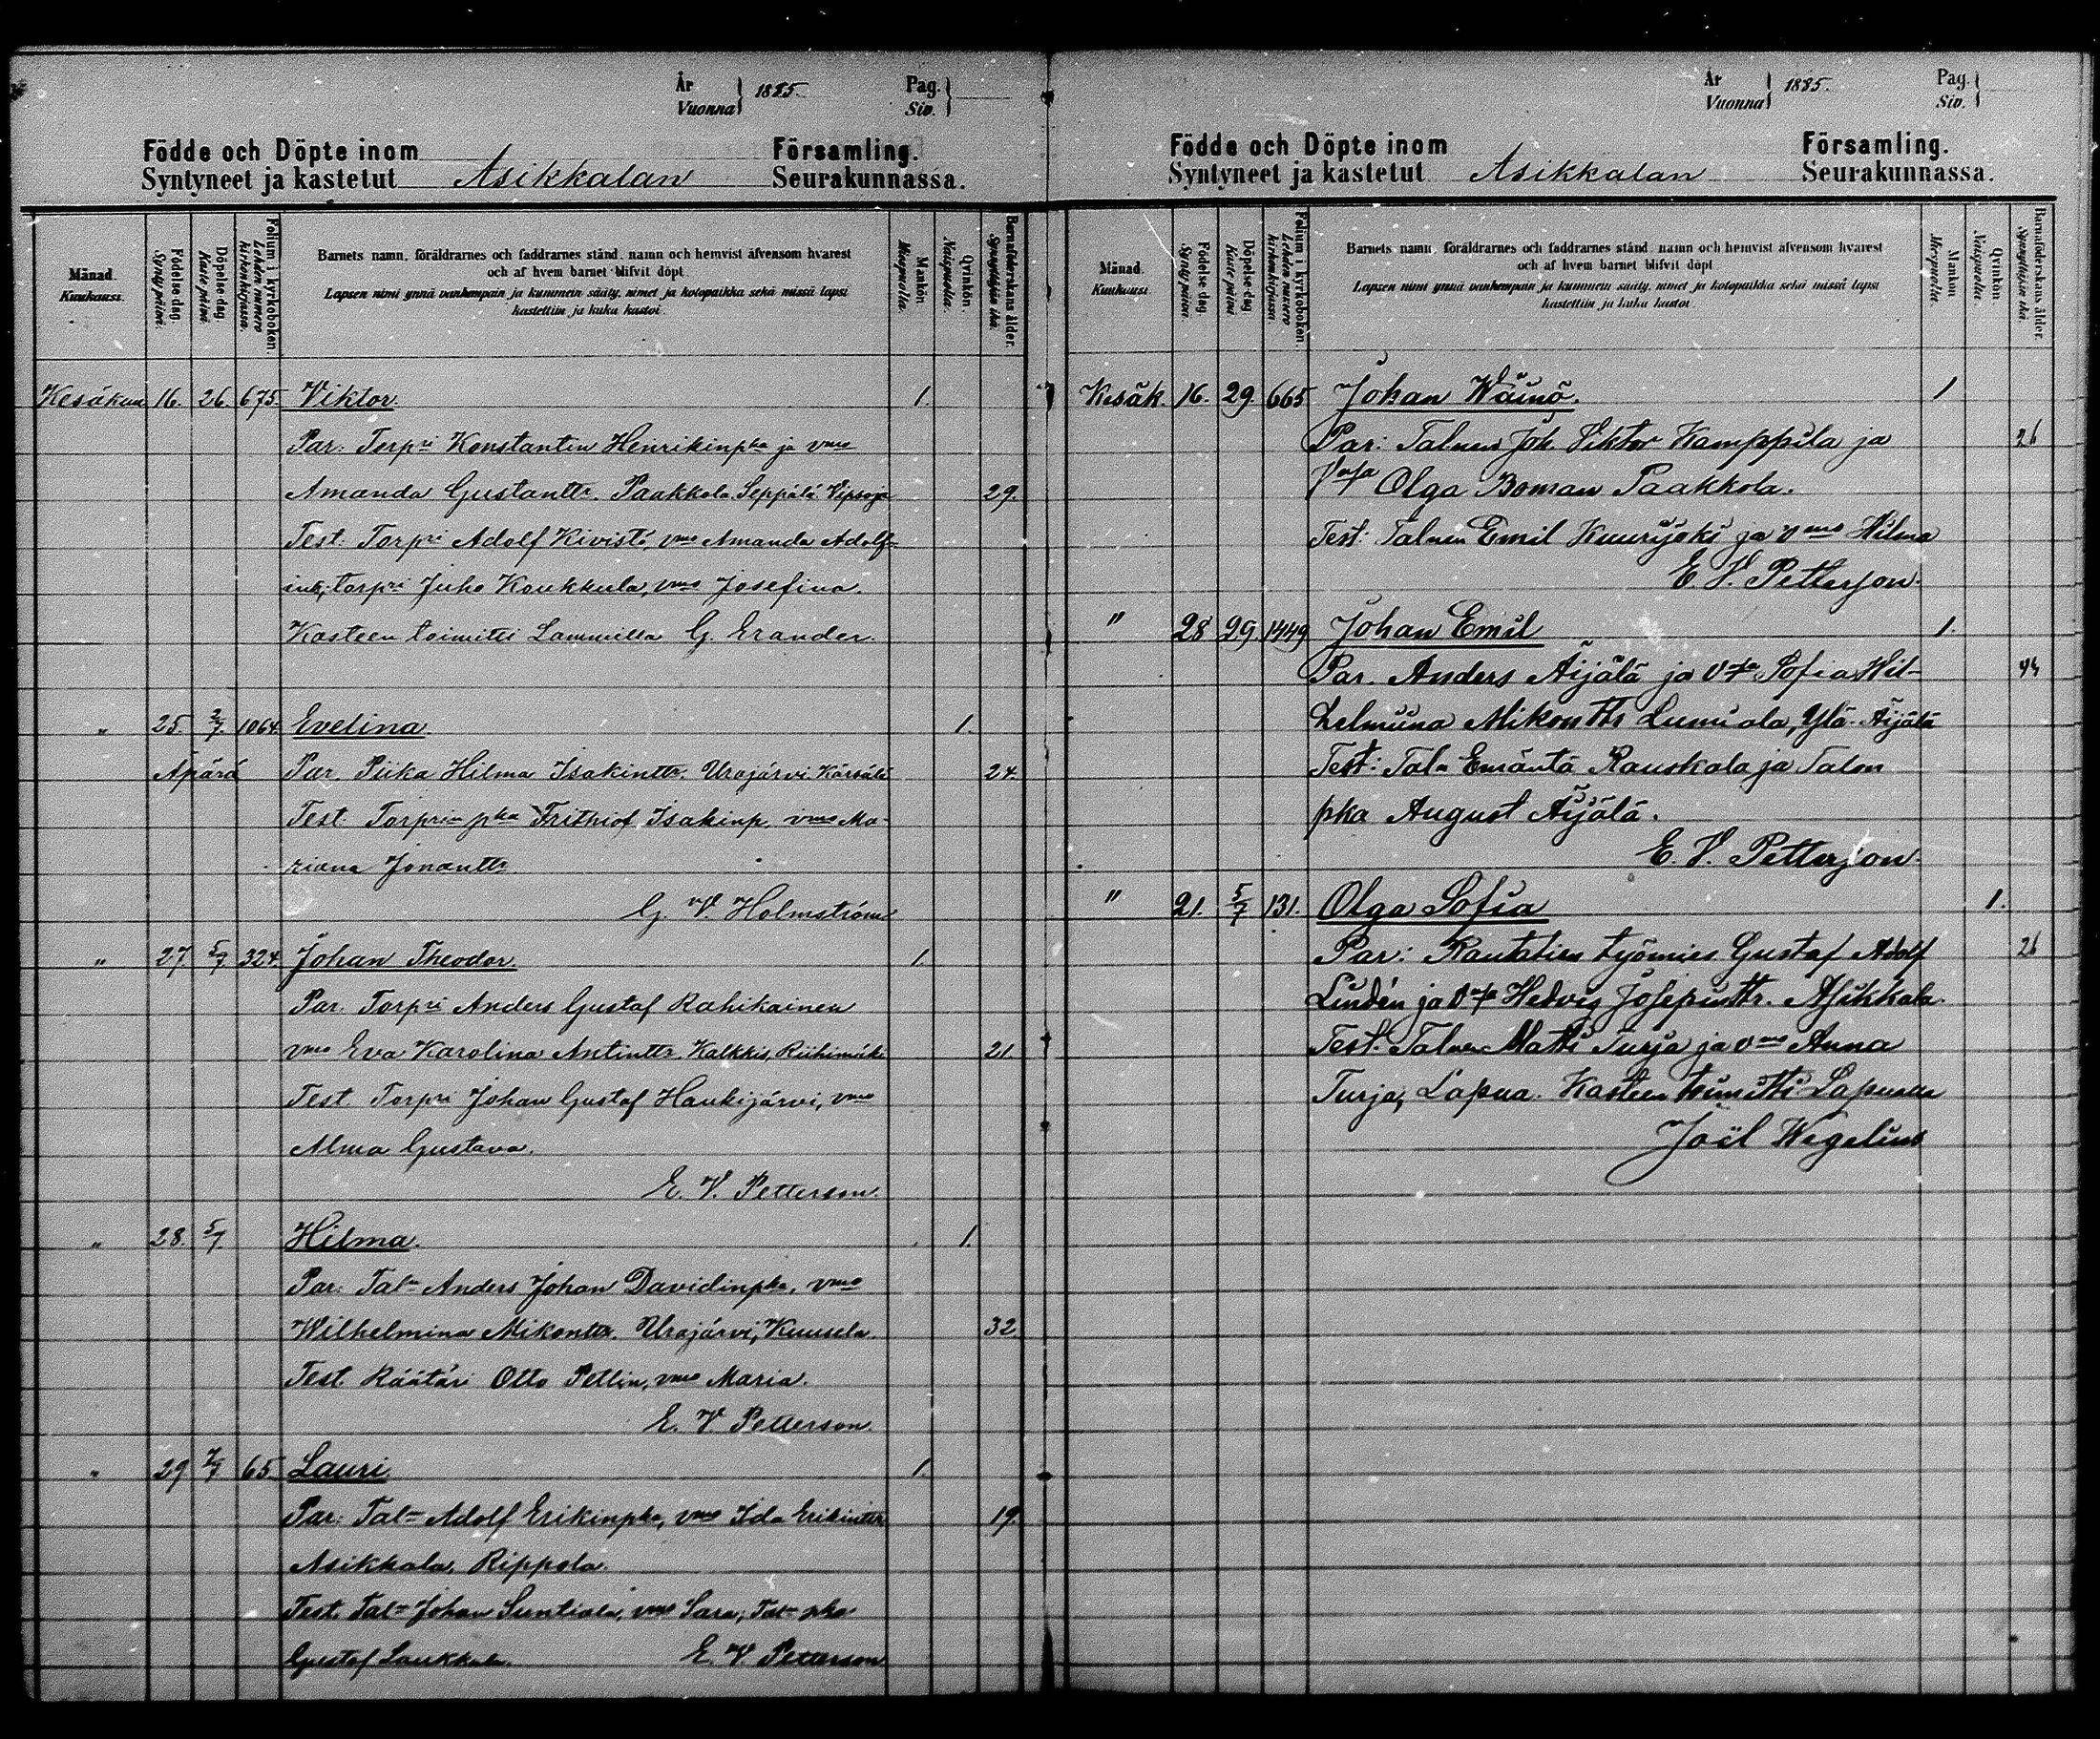 År
Vuonna } 1885.
Pag.
Siv. }
Födde och Döpte inom Församling.
Syntyneet ja kastetut Asikkalan Seurakunnassa.
Månad.
Kuukausi.
Födelse dag.
Synty päivä.
Döpelse dag.
Kaste päivä.
Folium i kyrkoboken.
Lehden numero kirkonkirjassa.
Barnets namn, föräldrarnes och faddrarnes stånd, namn och hemvist äfvensom hvarest
och af hvem barnet blifvit döpt.
Lapsen nimi ynnä vanhempain ja kummein sääty, nimet ja kotopaikka sekä missä lapsi
kastettiin ja kuka kastoi.
Mankön.
Miespuolia.
Qvinkön.
Naispuolia.
Barnaföderskans ålder.
Synnyttäjän ikä.
Kesäkuu 16. 26. 675. Viktor 1.
Par. Torpri Konstantin Henrikinpka ja vmo
Amanda Gustanttr. Paakkola. Seppälä 29.
Test: Torpri Adolf Kivistö, vmo Amanda Adolf-
torpri Juho Koukkula, vmo Josefina.
Kasteen toimitti Lammilla G. Erander.
" 25. 2/7. 1064. Evelina 1.
Äpärä Par. Piika Hilma Isakinttr. Urajärvi 24.
Test. Torprin pka Frithiof Isakinp. vmo Ma-
riana Jonanttr
G. V. Holmström
" 27 5/7 324. Johan Theodor 1.
Par. Torpri Anders Gustaf Rahikainen
vmo Eva Karolina Antinttr. Kalkkis, Riihimäki 21.
Test Torpri Johan Gustaf Haukijärvi, vmo
Alma Gustava.
E. V. Petterson.
" 28. 5/7. Hilma. 1.
Par: Taln Anders Johan Davidinpka, vmo
Wilhelmina Mikonttr. Urajärvi, Kuusela. 32
Test. Räätäri Otto Pettin, vmo Maria.
E. V. Petterson.
" 29 7/7 65 Lauri 1.
Par: Taln Adolf Erikinpka, vmo Ida Erikinttr 19.
Asikkala, Rippola.
Test. Taln Johan Suntiala, vmo Sara, Taln pka
Gustaf Laukkala. E. V. Petterson
År
Vuonna } 1885.
Pag.
Siv. }
Födde och Döpte inom Församling.
Syntyneet ja kastetut Asikkalan Seurakunnassa.
Månad.
Kuukausi.
Födelse dag.
Synty päivä.
Döpelse dag.
Kaste päivä.
Folium i kyrkoboken.
Lehden numero kirkonkirjassa.
Barnets namn, föräldrarnes och faddrarnes stånd, namn och hemvist äfvensom hvarest
och af hvem barnet blifvit döpt
Lapsen nimi ynnä vanhempain ja kummein sääty, nimet ja kotopaikka sekä missä lapsi
kastettiin ja kuka kastoi.
Mankön
Miespuolia.
Qvinkön
Naispuolia.
Barnaföderskans ålder.
Synnyttäjän ikä.
Kesäk. 16. 29. 665 Johan Wäinö. 1
Par: Talnen Joh. Viktor Kamppila ja 26
Olga Boman Paakkola.
Test: Talnen Emil Kuurijoki ja vmo Hilma
E. V. Petterson.
" 28 29 1449 Johan Emil 1.
Par. Anders Äijälä ja Sofia Wil-
helmiina Mikonttr Lumiala, Ylä-Äijälä
Test: Taln Emäntä Rauskala ja Talon
pka August Äijälä.
E. V. Petterson.
" 21. 5/7 131. Olga Sofia 1.
Par: Rautatien työmies Gustaf Adolf 26
Lindén ja Hedvig Josepinttr. Asikkala.
Test. Talnen Matti Turja ja vmo Anna
Turja, Lapua. Kasteen toimitti Lapuaan
Joël Wegelius